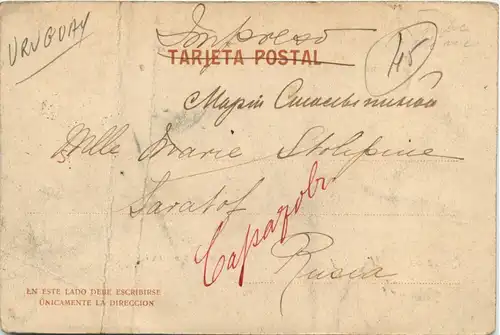 URUGUAY
Impreso
45
TARJETA POSTAL
Марiи
Mlle Marie Stolipine
Saratof
Саратовъ
Rusia
EN ESTE LADO DEBE ESCRIBIRSE
ÚNICAMENTE LA DIRECCION